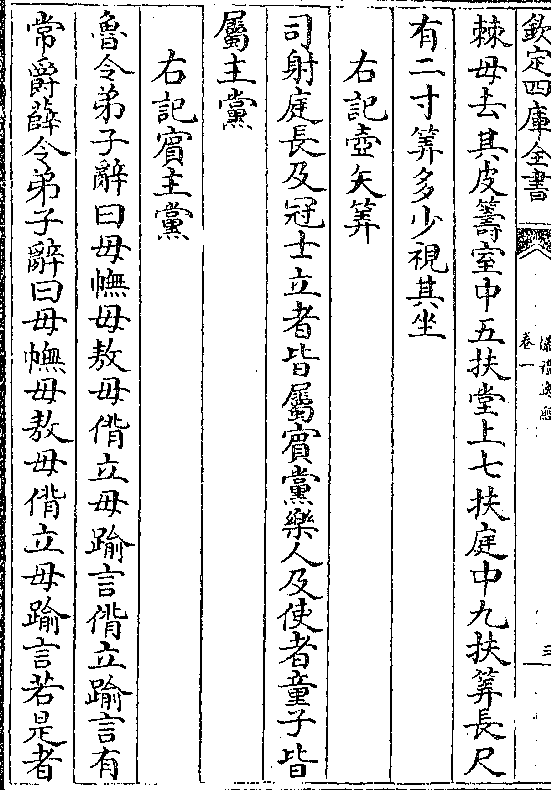 欽定四庫全書
卷一
三
棘毋去其皮籌室中五扶堂上七扶庭中九扶筭長尺
有二寸筭多少視其坐
右記壺矢筭
司射庭長及冠士立者皆屬賓黨樂人及使者童子皆
屬主黨
右記賓主黨
魯令弟子辭曰毋幠毋敖毋偝立毋踰言偝立踰言有
常爵薛令弟子辭曰毋幠毋敖毋偝立毋踰言若是者